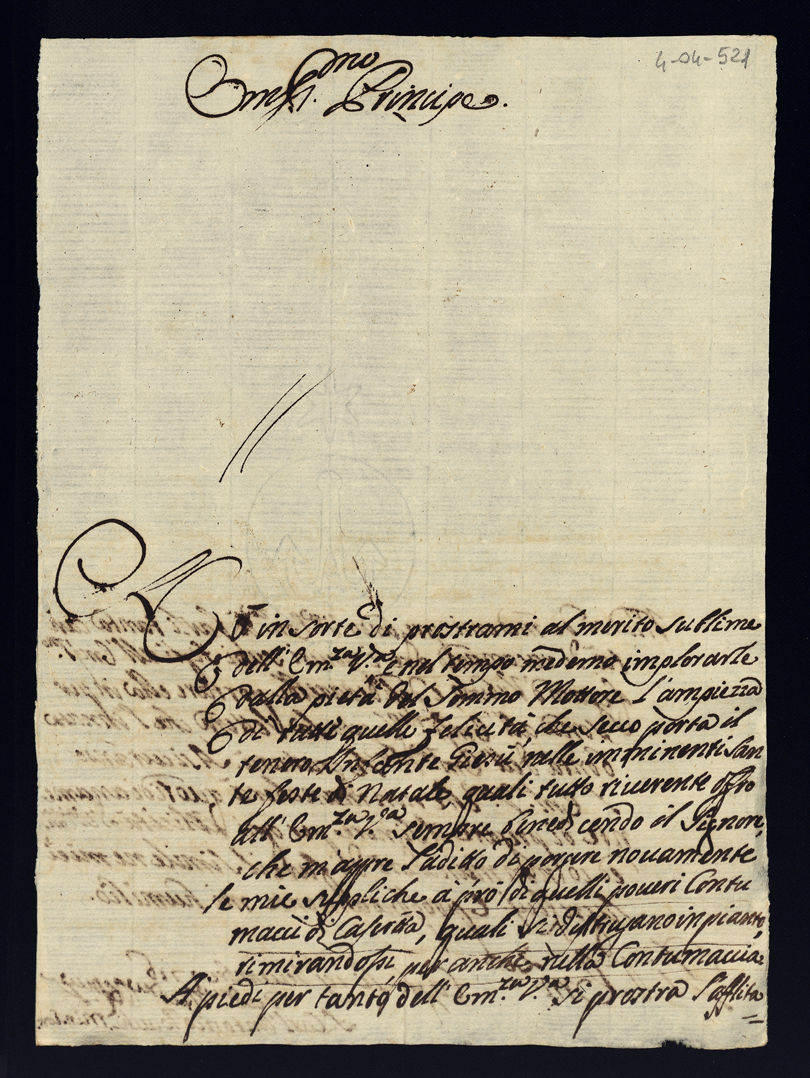 4-04-521
Em.mo Principe.
Hò in sorte di prostrarmi al merito sublime
dell' Em.za V.ra e nel tempo medemo implorarle
dalla pietà del Sommo Mottore l'ampiezza
di tutte quelle felicità, che seco porta il
tenero Infante Giesù nelle imminenti San
te feste di Natale, quali tutto riverente offro
all' Em.za V.ra sempre benedicendo il Signore,
che m'apre l'adito di porgere novamente
le mie suppliche a prò di quelli poveri Contu
macii di Caserta, quali si distrugano in pianto,
rimirandosi per anche nella Contumaccia.
A piedi per tanto dell' Em.za V.ra si prostra l'afflita